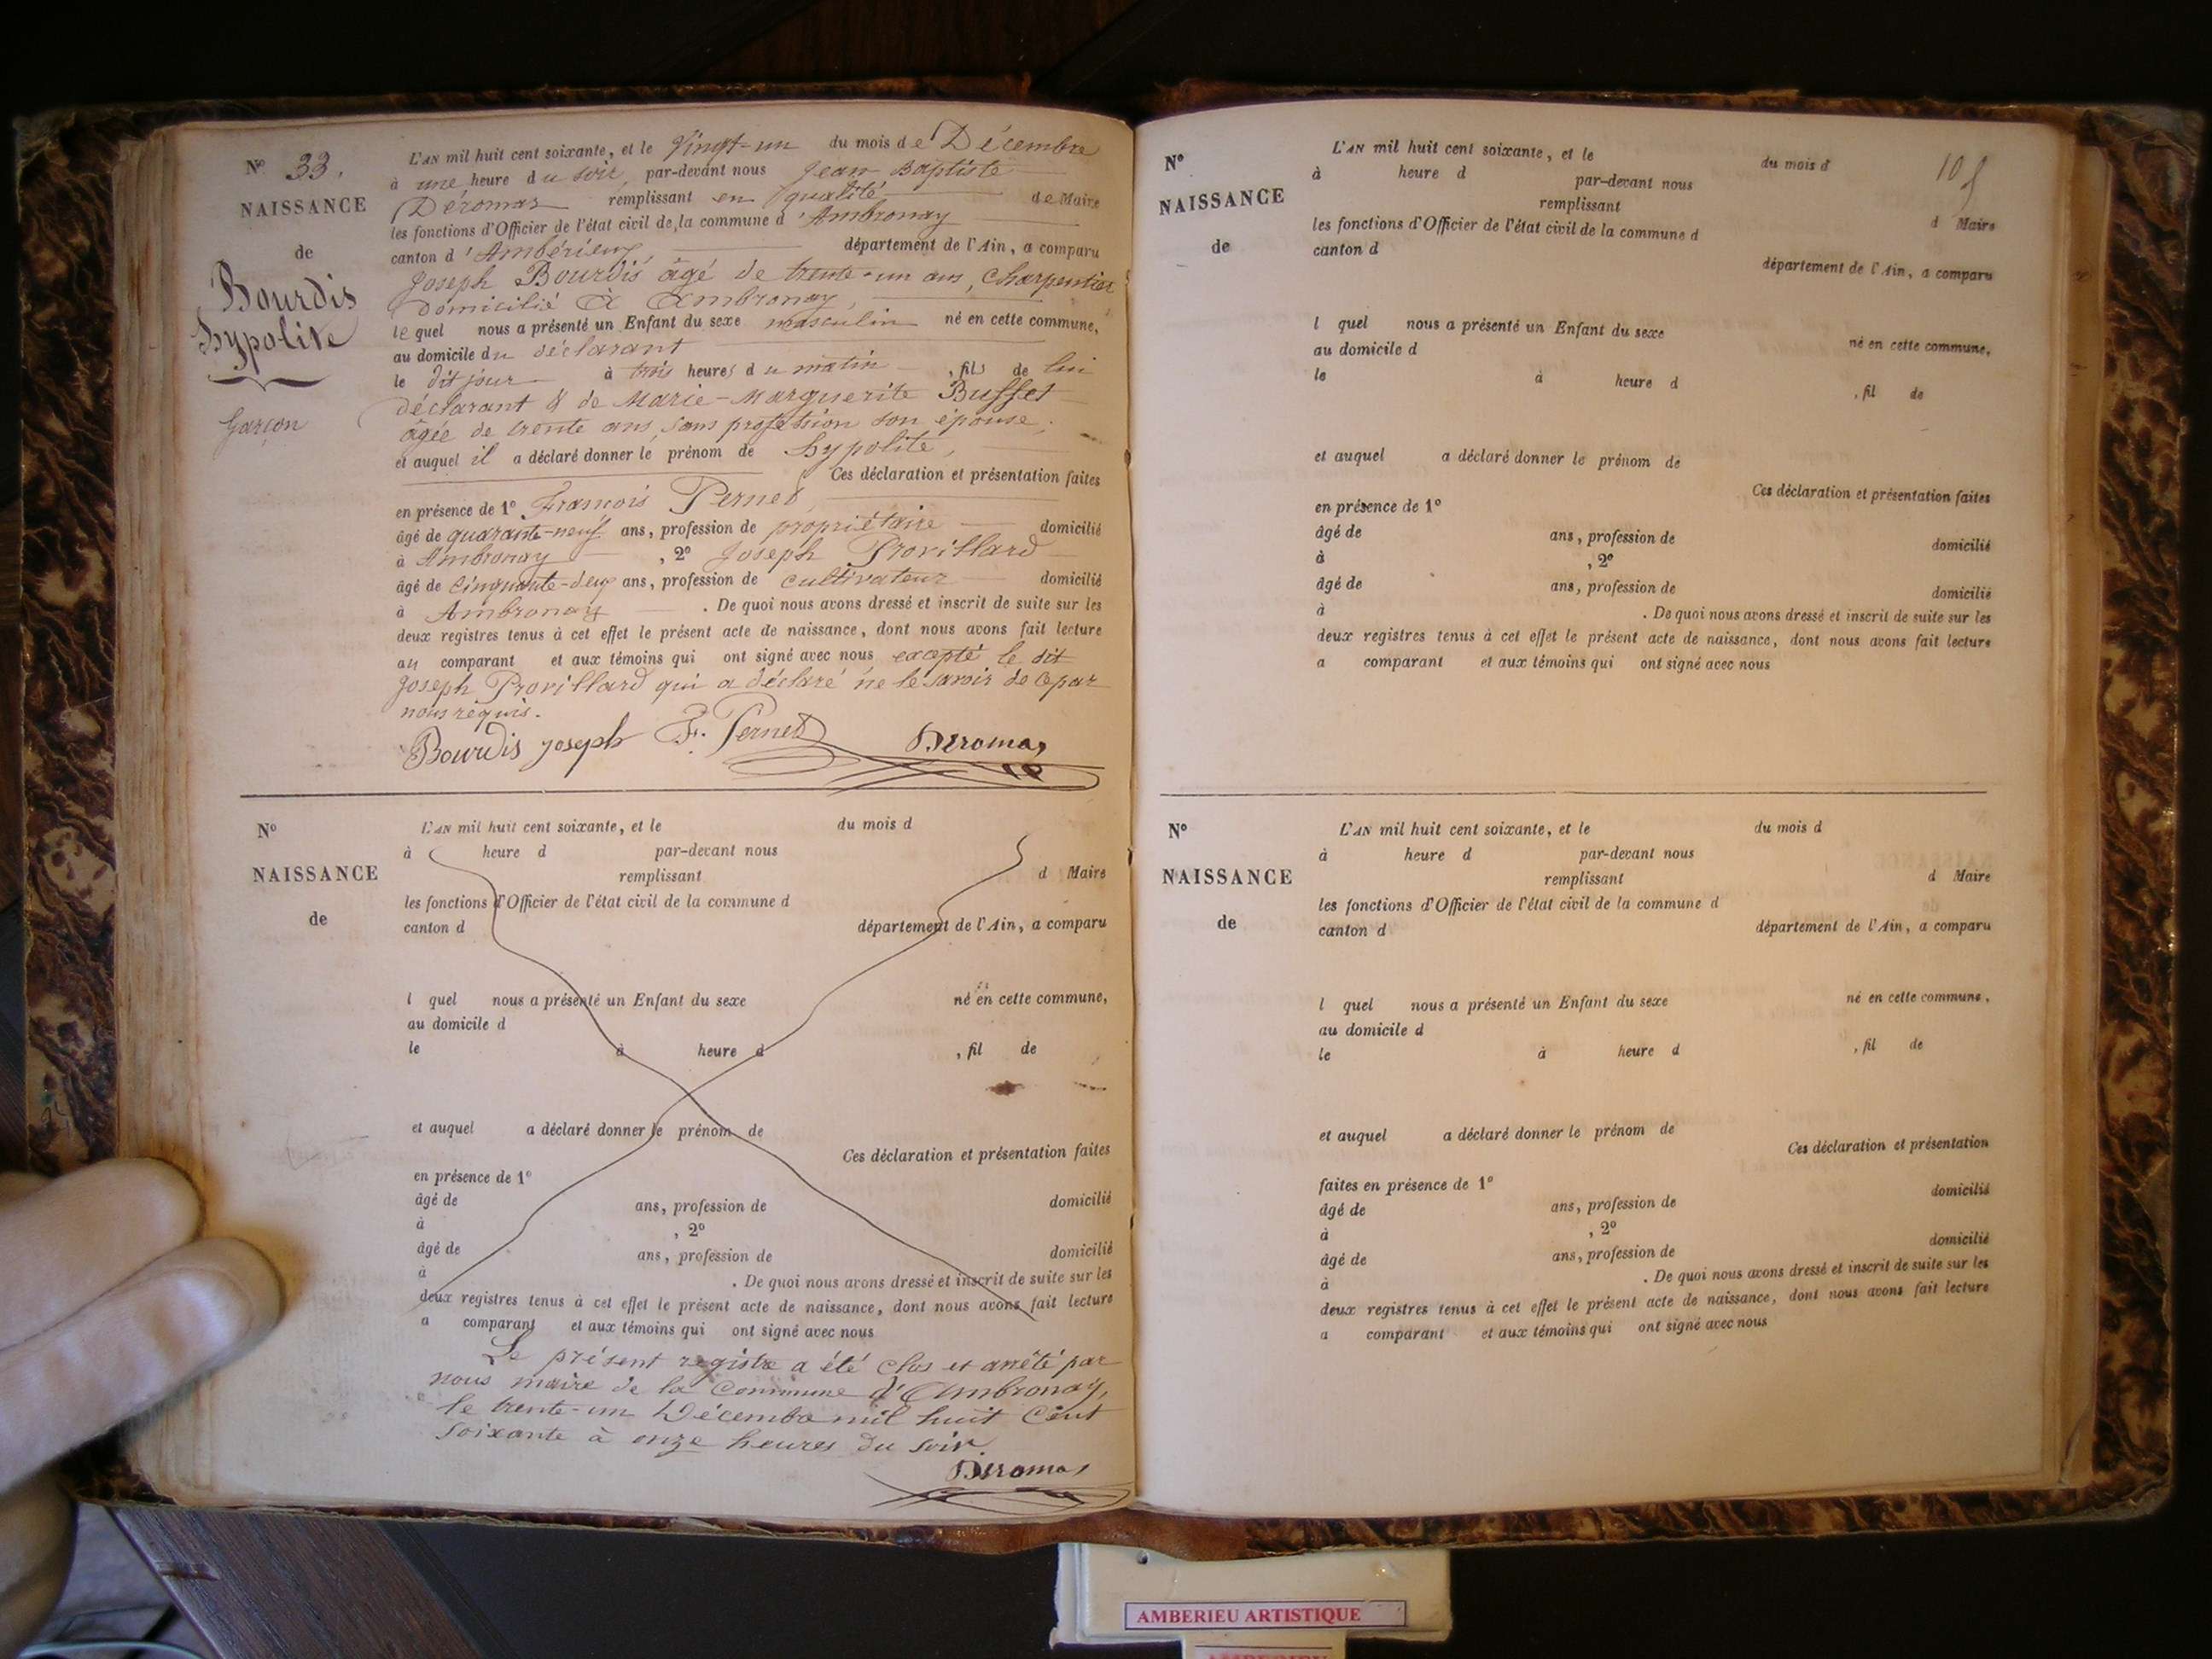 N° 33.
NAISSANCE
de
Bourdis
hypolite
garçon
L'AN mil huit cent soixante, et le vingt-un du mois de Décembre
à une heure du soir, par-devant nous Jean Baptiste
Déromas remplissant en qualité de Maire
les fonctions d'Officier de l'état civil de la commune d'Ambronay
canton d'Ambérieux, département de l'Ain, a comparu
Joseph Bourdis âgé de trente-un ans, charpentier
domicilié à Ambronay,
lequel nous a présenté un Enfant du sexe masculin né en cette commune,
au domicile du déclarant
le dit jour à trois heures du matin, fils de lui
déclarant & de Marie-Marguerite Buffet
âgée de trente ans, sans profession son épouse,
et auquel il a déclaré donner le prénom de hypolite,
Ces déclaration et présentation faites
en présence de 1° François Pernet,
âgé de quarante-neuf ans, profession de propriétaire domicilié
à Ambronay, 2° Joseph Provillard
âgé de cinquante-deux ans, profession de cultivateur domicilié
à Ambronay. De quoi nous avons dressé et inscrit de suite sur les
deux registres tenus à cet effet le présent acte de naissance, dont nous avons fait lecture
au comparant et aux témoins qui ont signé avec nous excepté le dit
Joseph Provillard qui a déclaré ne le savoir de ce par
nous requis.
Bourdis joseph F. Pernet Deromas
N°
NAISSANCE
de
L'AN mil huit cent soixante, et le du mois d
à heure d par-devant nous
remplissant d Maire
les fonctions d'Officier de l'état civil de la commune d
canton d département de l'Ain, a comparu
l quel nous a présenté un Enfant du sexe né en cette commune,
au domicile d
le à heure d , fil de
et auquel a déclaré donner le prénom de
Ces déclaration et présentation faites
en présence de 1°
âgé de ans, profession de domicilié
à , 2°
âgé de ans, profession de domicilié
à . De quoi nous avons dressé et inscrit de suite sur les
deux registres tenus à cet effet le présent acte de naissance, dont nous avons fait lecture
a comparant et aux témoins qui ont signé avec nous
Le présent registre a été clos et arrêté par
nous maire de la Commune d'Ambronay,
le trente-un Décembre mil huit cent
soixante à onze heures du soir.
Deromas
N°
NAISSANCE
de
L'AN mil huit cent soixante, et le du mois d
à heure d par-devant nous
remplissant d Maire
les fonctions d'Officier de l'état civil de la commune d
canton d département de l'Ain, a comparu
l quel nous a présenté un Enfant du sexe né en cette commune,
au domicile d
le à heure d , fil de
et auquel a déclaré donner le prénom de
Ces déclaration et présentation faites
en présence de 1°
âgé de ans, profession de domicilié
à , 2°
âgé de ans, profession de domicilié
à . De quoi nous avons dressé et inscrit de suite sur les
deux registres tenus à cet effet le présent acte de naissance, dont nous avons fait lecture
a comparant et aux témoins qui ont signé avec nous
N°
NAISSANCE
de
L'AN mil huit cent soixante, et le du mois d
à heure d par-devant nous
remplissant d Maire
les fonctions d'Officier de l'état civil de la commune d
canton d département de l'Ain, a comparu
l quel nous a présenté un Enfant du sexe né en cette commune,
au domicile d
le à heure d , fil de
et auquel a déclaré donner le prénom de
Ces déclaration et présentation
faites en présence de 1° domicilié
âgé de ans, profession de
à , 2° domicilié
âgé de ans, profession de
à . De quoi nous avons dressé et inscrit de suite sur les
deux registres tenus à cet effet le présent acte de naissance, dont nous avons fait lecture
a comparant et aux témoins qui ont signé avec nous
AMBERIEU ARTISTIQUE